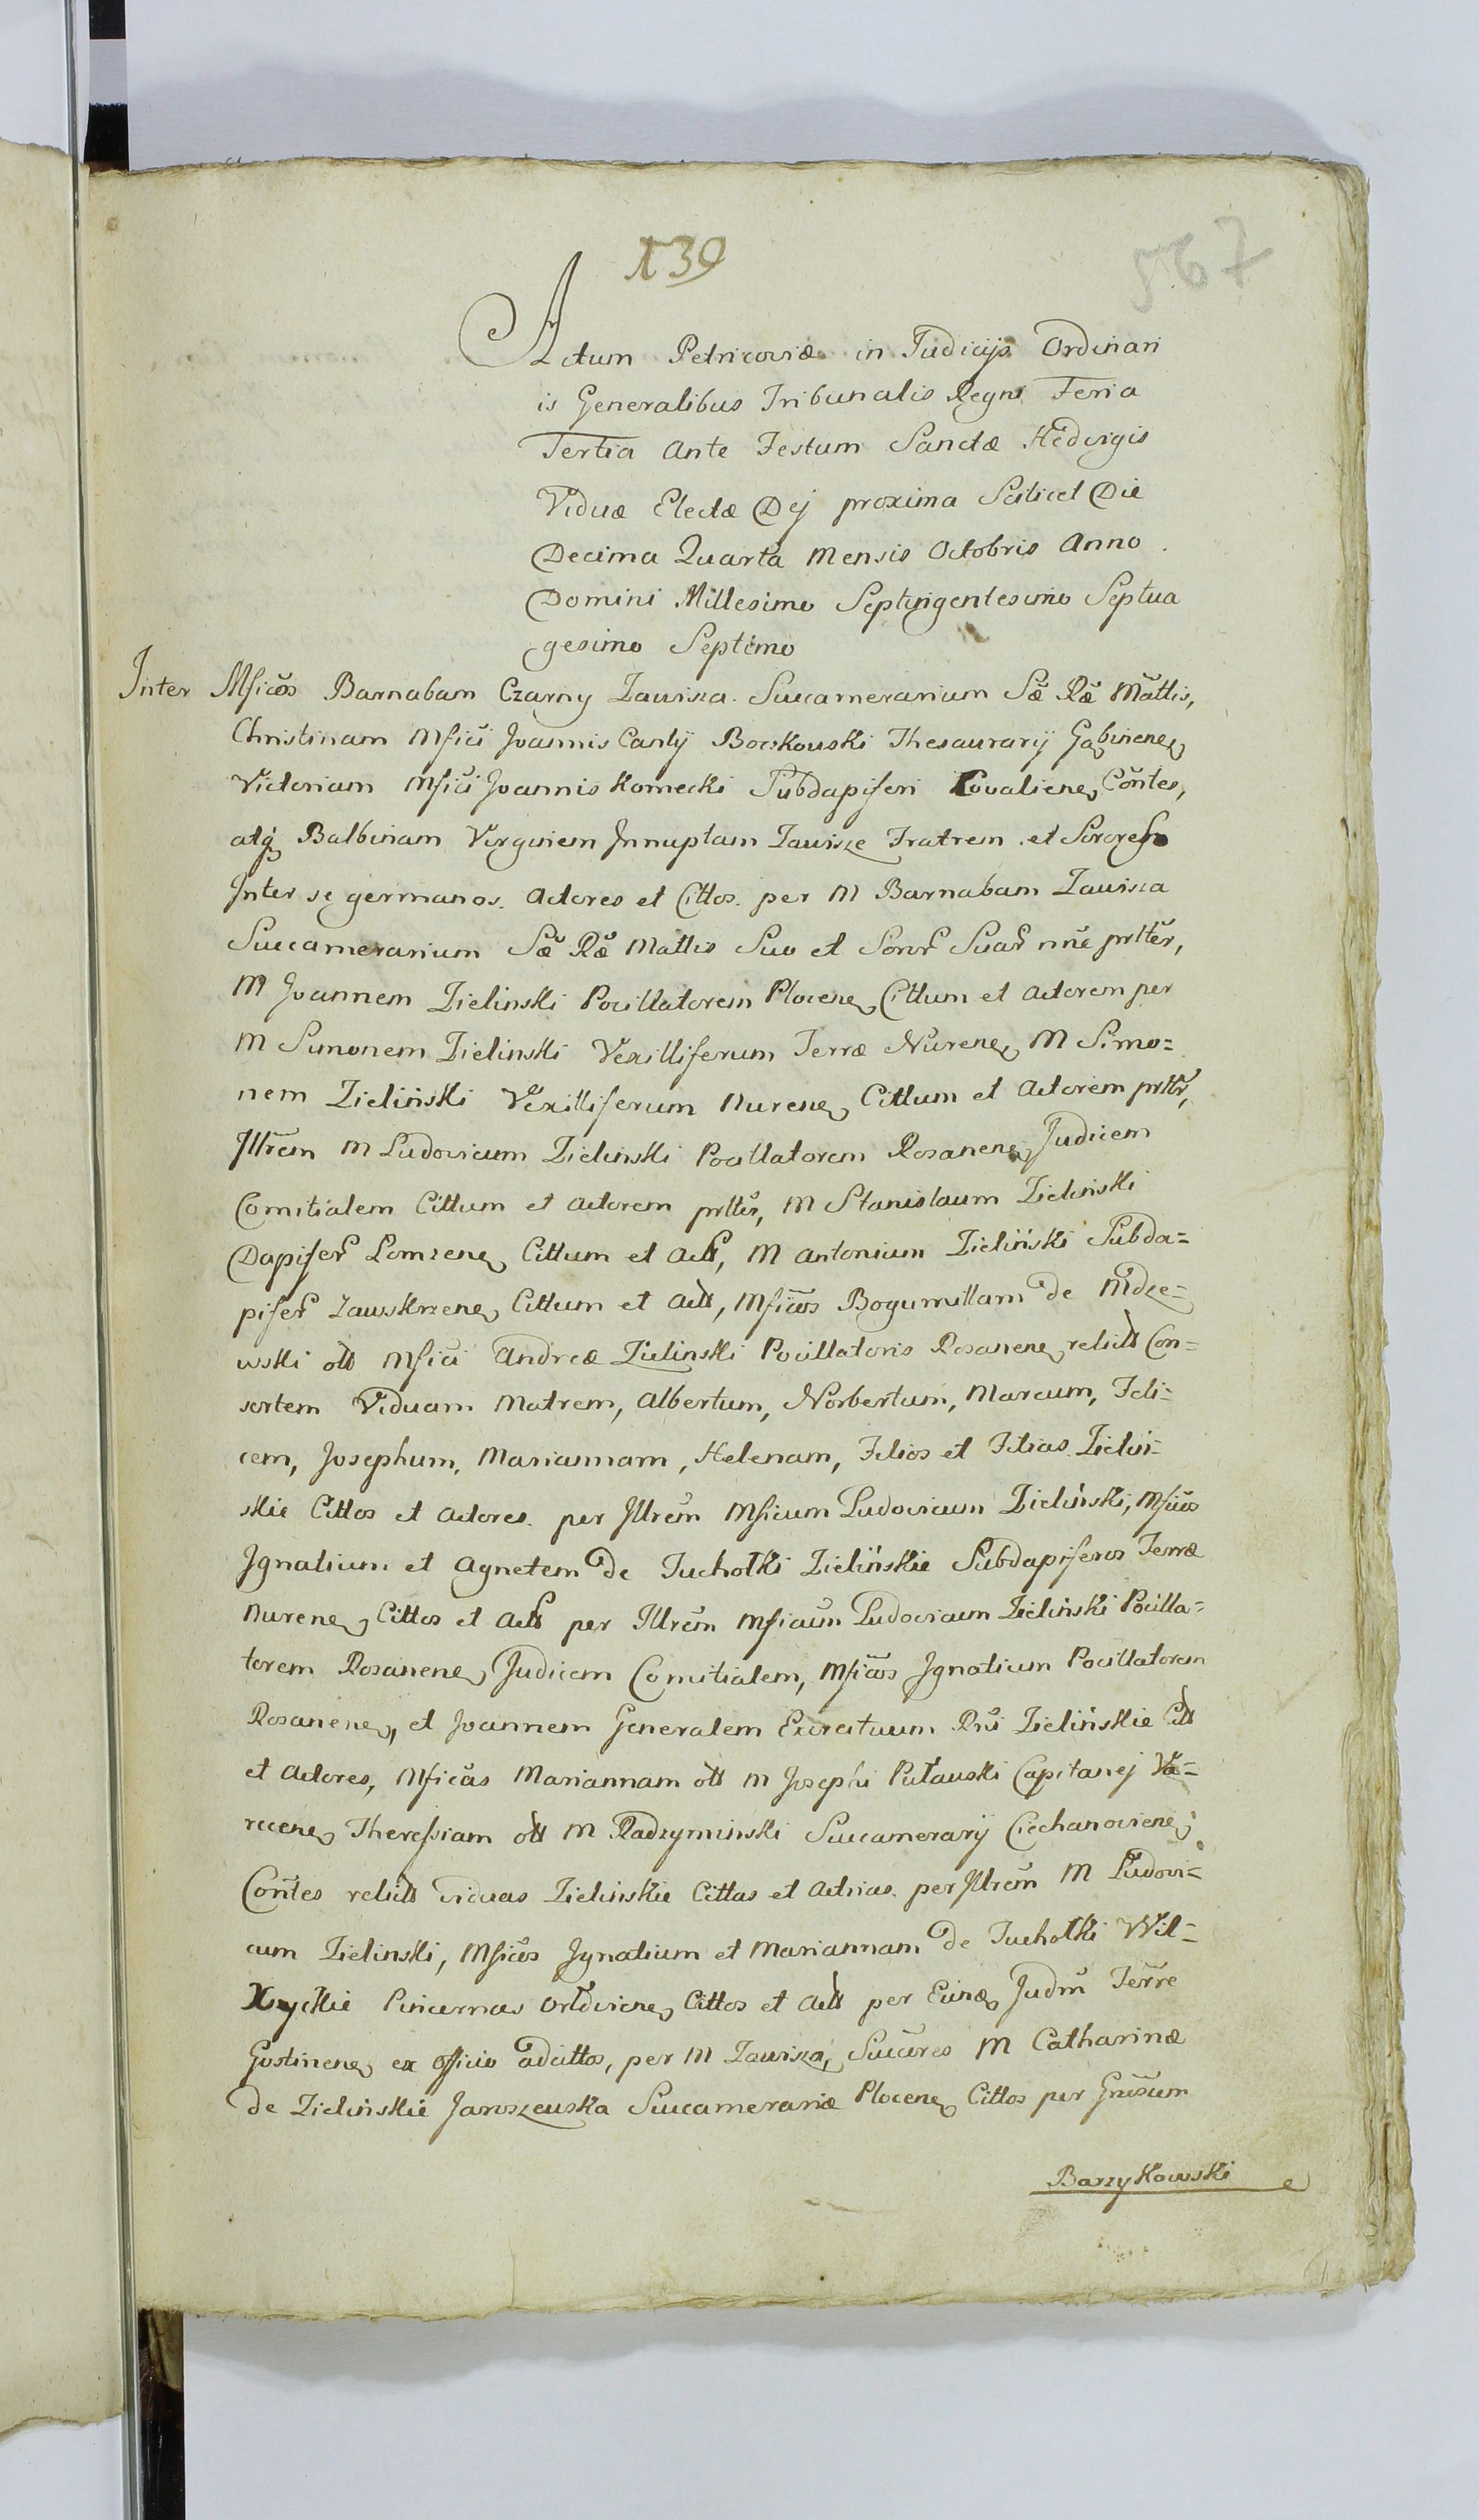 139
567
Actum Petricoviæ in Judicijs Ordinari
is Generalibus Tribunalis Regni Feria
Tertia Ante Festum Sanctæ Hedvigis
Viduæ Electæ Dej proxima Scilicet Die
Decima Quarta Mensis Octobris Anno
Domini Millesimo Septingentesimo Septua
gesimo Septimo
Inter Mficos Barnabam Czarny Zawisza Succamerarium Sæ Ræ Mattis,
Christinam Mfici Joannis Canty Boczkowski Thesaurarij Gąbinenę
Victoriam Mfici Joannis Kornecki Subdapiferi Kovalienę Contes,
atq Balbinam Virginem Innuptam Zawisze Fratrem et Sorores
Inter se germanos Actores et Cittos per M Barnabam Zawisza
Succamerarium Sæ Ræ Mattis Suo et Soror Suar nne prlter,
M Joannem Zielinski Pocillatorem Plocenę Cittum et Actorem per
M Simonem Zielinski Vexilliferum Terræ Nurenę M Simo=
nem Zieliński Vexilliferum Nurenę Cittum et Actorem prltr,
Jllrem M Ludovicum Zieliński Pocillatorem Rosanenę Judicem
Comitialem Cittum et Actorem prlter, M Stanislaum Zieliński
Dapifer Lomzenę Cittum et Act, M Antonium Zieliński Subda=
pifer Zawskrzenę Cittum et Act, Mficos Bogumillam de Mdze=
wski olt Mfici Andreæ Zielinski Pocillatoris Rosanenę relict Con=
sortem Viduam Matrem, Albertum, Norbertum, Marcum, Feli=
cem, Josephum, Mariannam, Helenam, Filios et Filias Zieliń=
skie Cittos et Actores per Jllrem Mficum Ludovicum Zieliński, Mficos
Jgnatium et Agnetem de Tucholki Zielińskie Subdapiferos Terræ
Nurenę Cittos et Act per Jllrem Mficum Ludovicum Zieliński Pocilla=
torem Rosanenę Judicem Comitialem, Mficos Jgnatium Pocillatorem
Rosanenę, et Joannem Generalem Exercituum Rni Zielińskie Citt
et Actores, Mficas Mariannam olt M Josephi Pułauski Capitanej Va=
recenę Theressiam olt M Radzyminski Succamerarij Ciechanovienę
Contes relict viduas Zielińskie Cittas et Actrias per Jllrem M Ludovi=
cum Zielinski, Mficos Jgnatium et Mariannam de Tucholki Wil=
Xyckie Pincernas Orlovienę Cittos et Act per Eundę Judm Terre
Gostinenę ex Officio adcittos, per M Zawisza, Succres M Catharinæ
de Zielińskie Jaroszewska Succamerariæ Plocenę Cittos per Gnrosum
Barzykowski